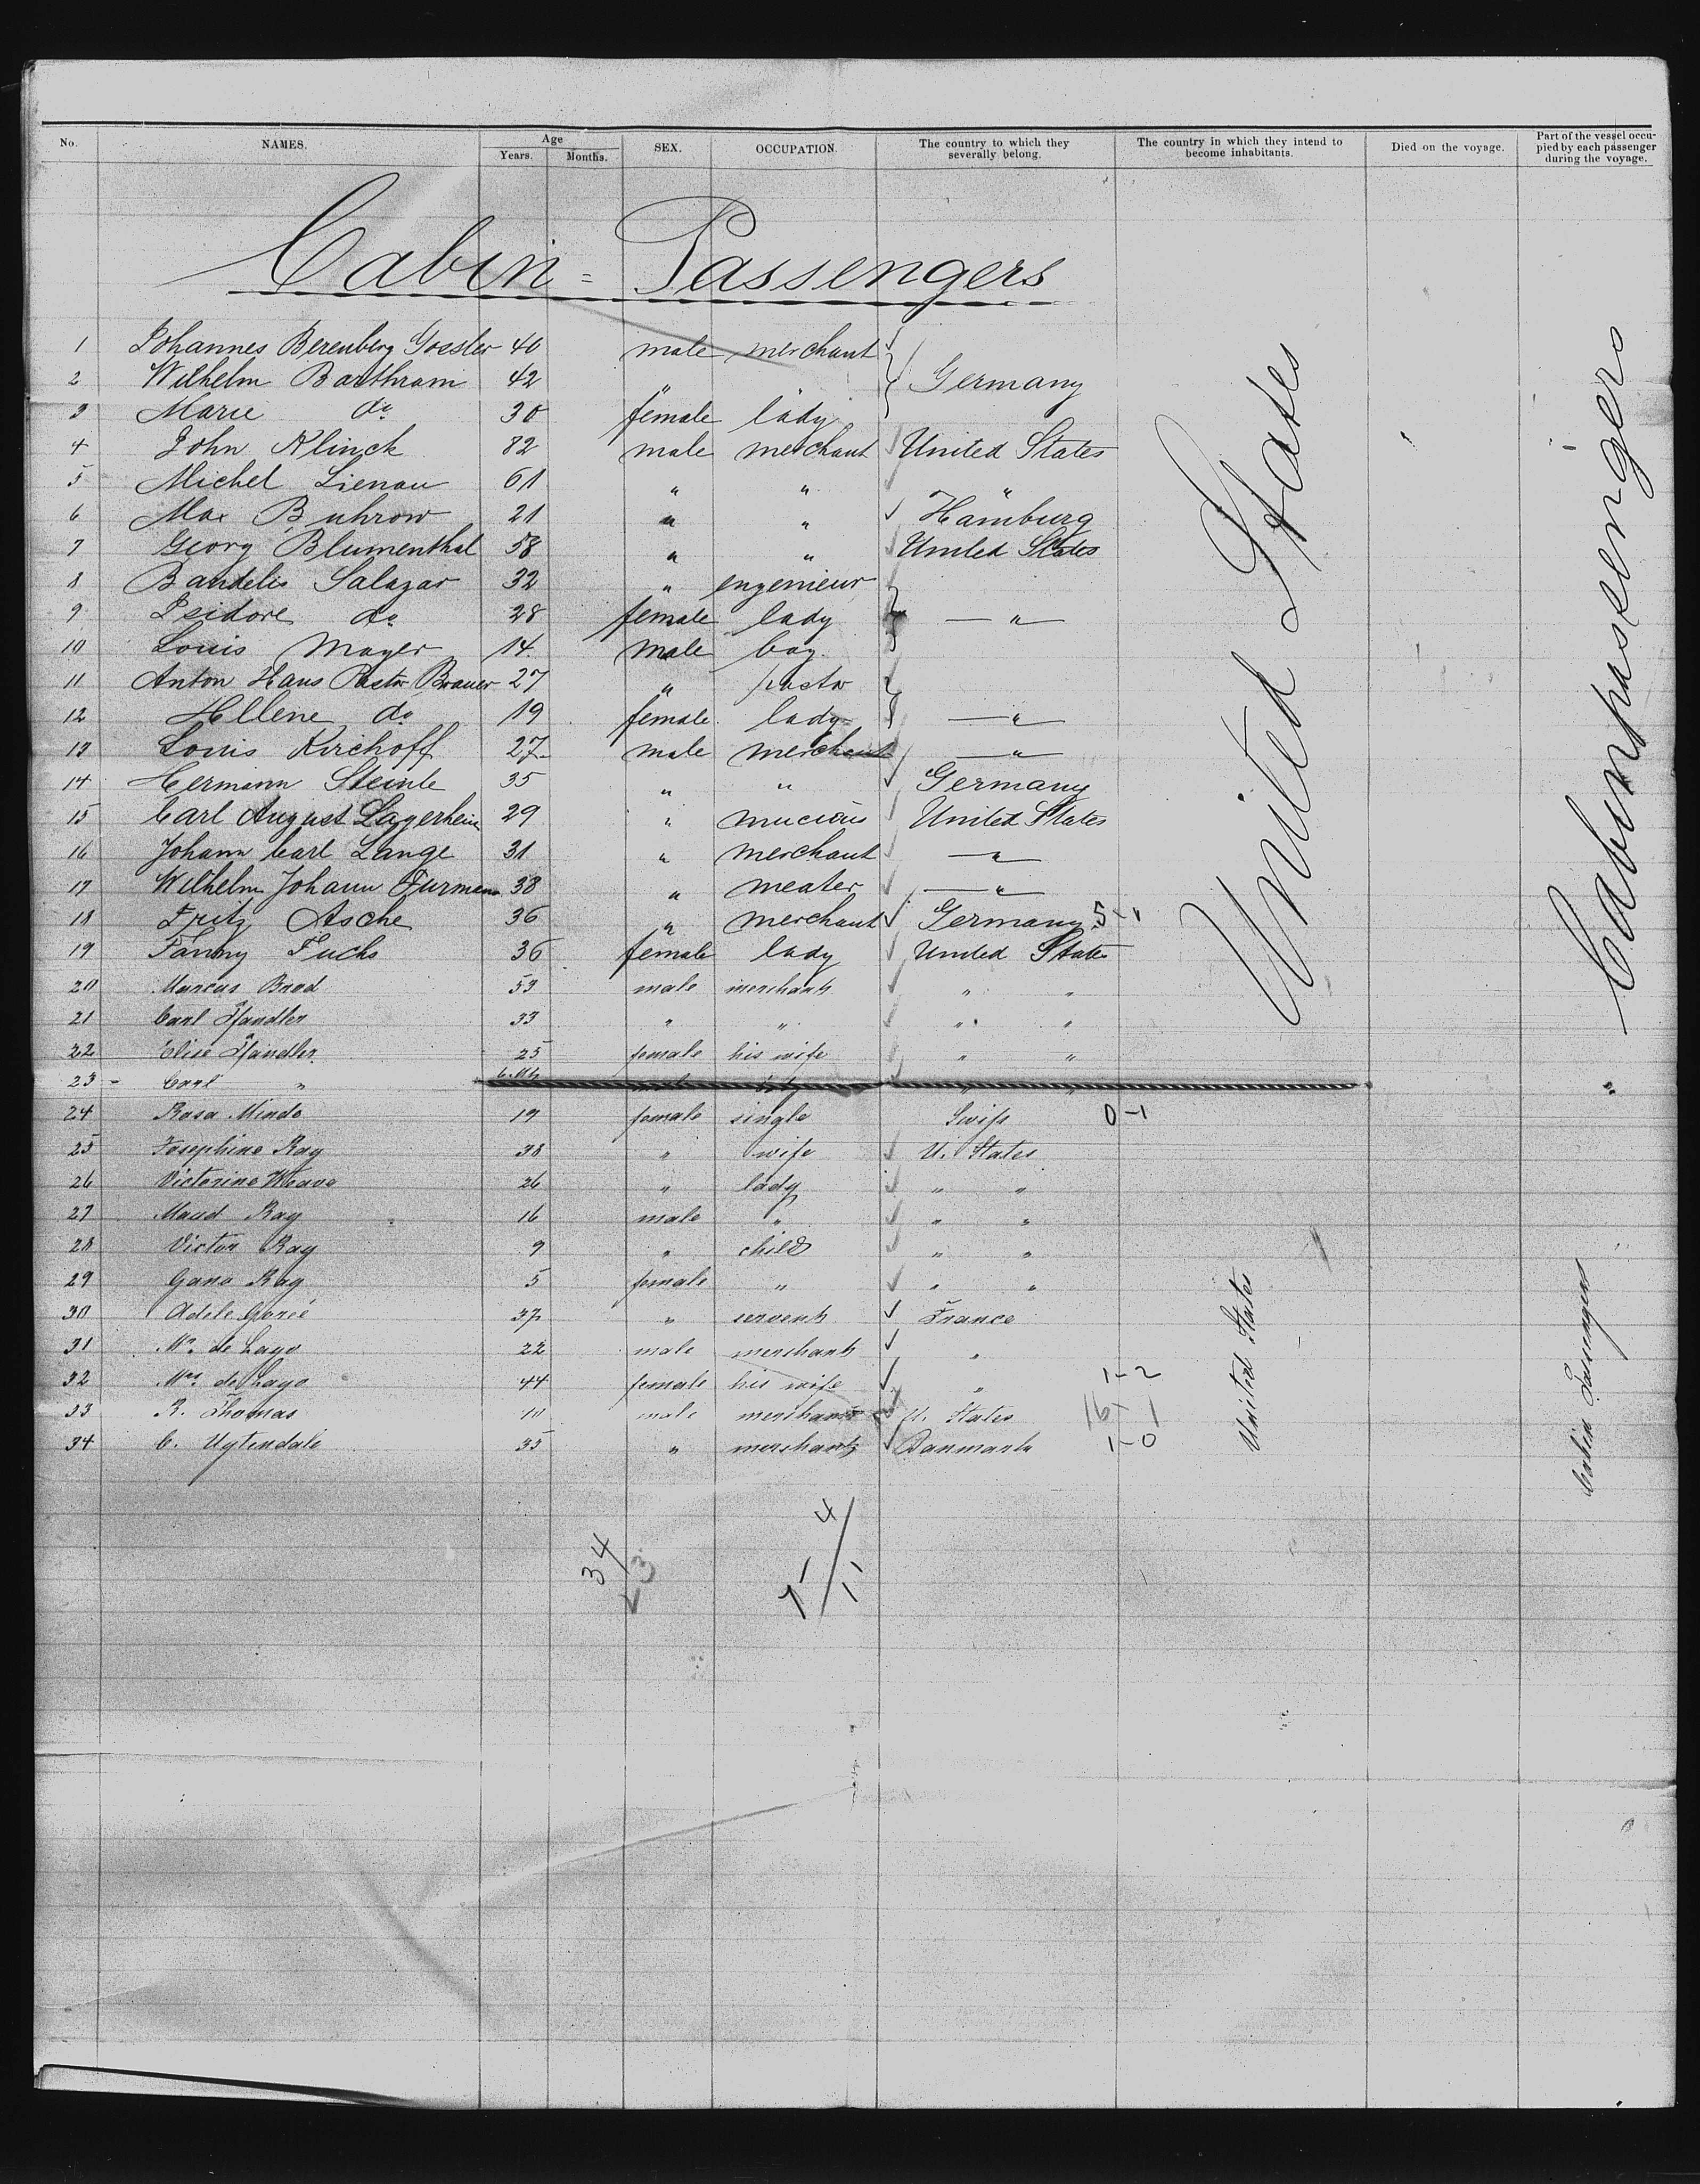 No. NAMES. Age Years. Months. SEX. OCCUPATION. The country to which they severally belong. The country in which they intend to become inhabitants. Died on the voyage. Part of the vessel occupied by each passenger during the voyage.
Cabin = Passengers
1 Johannes Berenberg Gossler 40 male merchant
2 Wilhelm Barthram 42 " Germany
3 Marie do 30 female lady
4 John Klinck 82 male merchant United States
5 Michel Lienau 61 " " "
6 Max Buhrow 21 " " Hamburg
7 Georg Blumenthal 58 " " United States
8 Bandelis Salazar 32 " engenieur
9 Isidore do 28 female lady "
10 Louis Mayer 14 male boy
11 Anton Haus Pastor Brauer 27 " pastor
12 Hellene do 19 female lady "
13 Louis Kirchoff 27 male merchant "
14 Hermann Steinle 35 " " Germany
15 Carl August Lagerheim 29 " mucicus United States
16 Johann Carl Lange 31 " merchant "
17 Wilhelm Johann Furmann 38 " meater "
18 Fritz Asche 36 " merchant Germany 5-1
19 Fanny Fuchs 36 female lady United States
20 Marcus Brod 53 male merchant " "
21 Carl Handler 33 " " " "
22 Elise Handler 25 female his wife " "
23 - Carl " " "
24 Rosa Minde 19 female single Swiss 0-1
25 Josephine Ray 38 " wife U. States
26 Victorine Weave 26 " lady " "
27 Maud Ray 16 male " " "
28 Victor Ray 9 " child " "
29 Gana Ray 5 female " " "
30 Adele Gorié 37 " servent France
31 Mr. de Lago 22 male merchant "
32 Mrs. de Lago 44 female his wife " 1-2
33 R. Thomas male merchant U. States 16 1
34 C. Ugtendale 35 " merchant Danmark 1-0
United States
Cabinpassengers
"
United States
Cabin Passengers
34
23
4
11